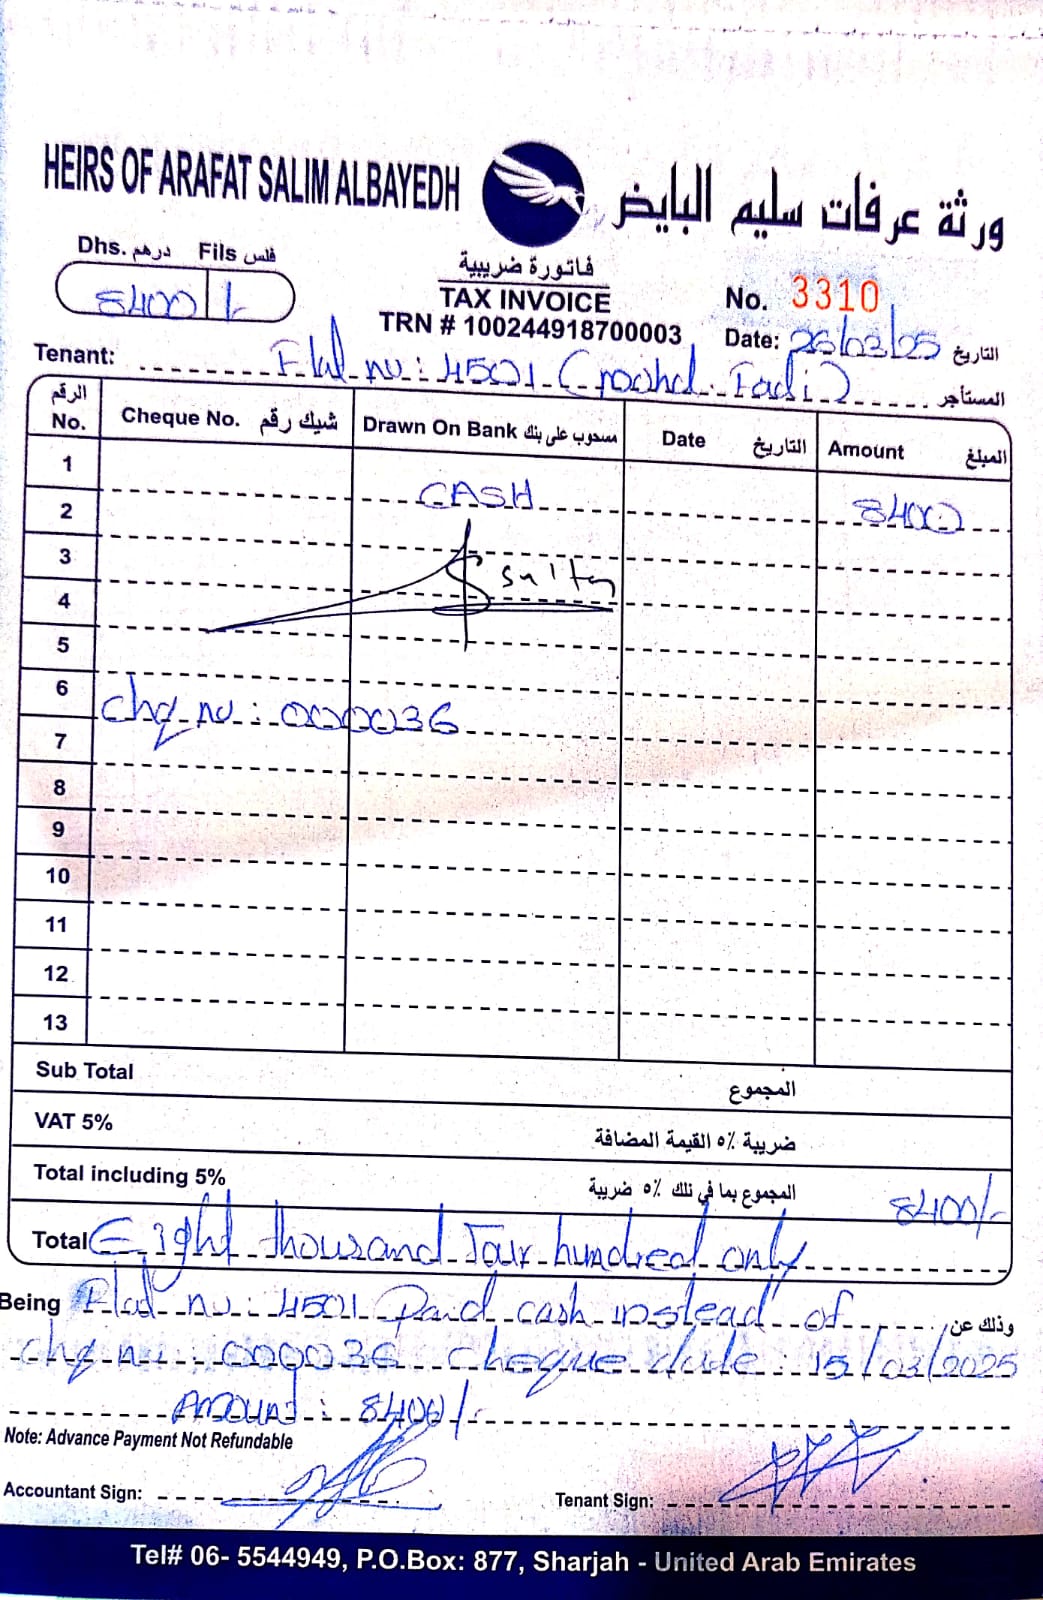 HEIRS OF ARAFAT SALIM ALBAYEDH ورثة عرفات سليم البايض
Dhs. درهم Fils فلس
8400 /-
فاتورة ضريبية
TAX INVOICE
TRN # 100244918700003
No. 3310
Date: 26/03/25 التاريخ
Tenant: Flat no: 4501 ( Fadi) المستأجر
الرقم No. Cheque No. شيك رقم Drawn On Bank مسحوب على بنك Date التاريخ Amount المبلغ
1
2 CASH 8400
3
4
5
6
chq no: 000036
7
8
9
10
11
12
13
Sub Total المجموع
VAT 5% ضريبة ٥٪ القيمة المضافة
Total including 5% المجموع بما في ذلك ٥٪ ضريبة 8400/-
Total Eight thousand Four hundred only
Being Flat no: 4501 Paid cash instead of وذلك عن
chq no: 000036 cheque date: 15/03/2025
Amount: 8400/-
Note: Advance Payment Not Refundable
Accountant Sign:
Tenant Sign:
Tel# 06- 5544949, P.O.Box: 877, Sharjah - United Arab Emirates